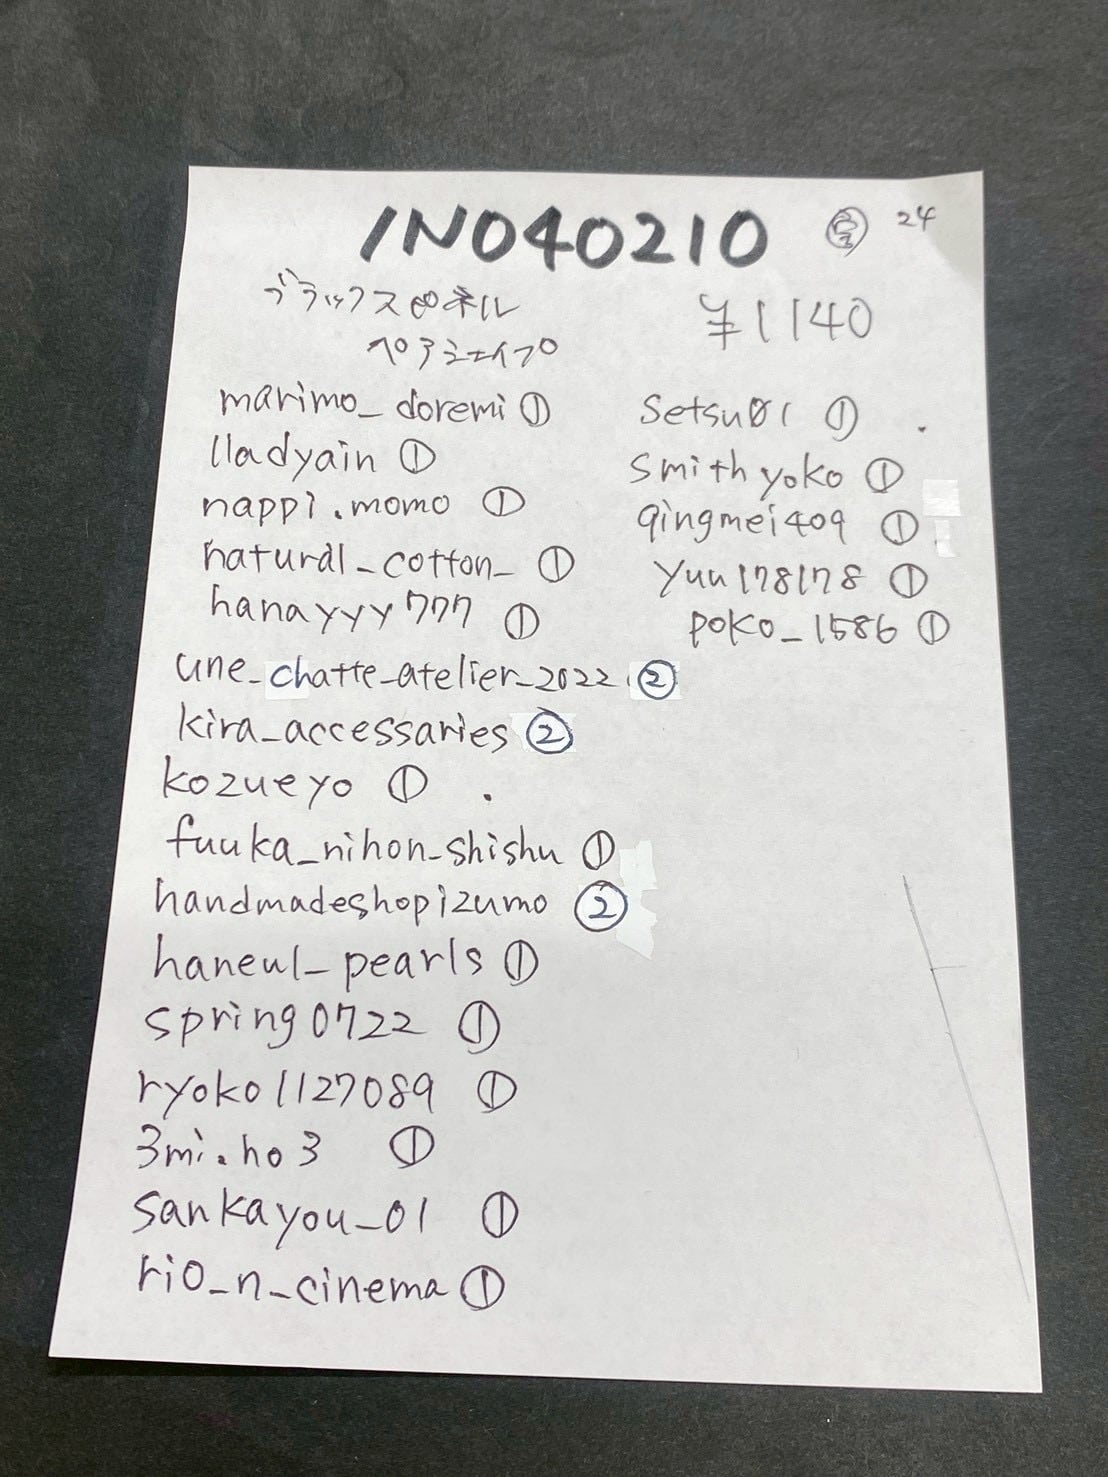 INO40210 24
ブラックスピネル
ペアシェイプ
¥1140
marimo_doremi ①
lladyain ①
nappi.momo ①
natural_cotton_ ①
hanayyy777 ①
une_chatte_atelier_2022 ②
kira_accessaries ②
kozueyo ①
fuuka_nihon_shishu ①
handmadeshopizumo ②
haneul_pearls ①
spring0722 ①
ryoko1127089 ①
3mi.ho3 ①
sankayou_01 ①
rio_n_cinema ①
setsu01 ①
smithyoko ①
qingmei409 ①
yuu178178 ①
poko_1586 ①